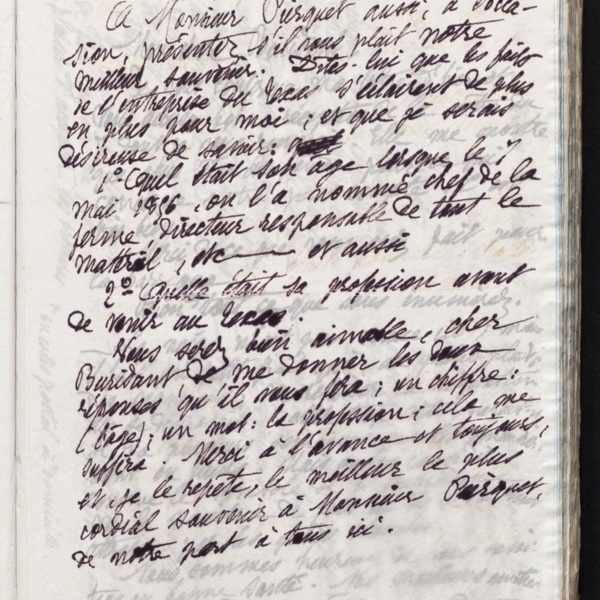 A Monsieur Purquet aussi, à l'occa-
sion, présenter s'il vous plaît notre
meilleur souvenir. Dites-lui que les faits
de l'entreprise du Texas s'éclairent de plus
en plus pour moi ; et que je serais
désireuse de savoir :
1º Quel était son âge lorsque le 7
mai 1856, on l'a nommé chef de la
ferme, directeur responsable de tout le
matériel, etc et aussi
2º Quelle était sa profession avant
de venir au Texas.
Vous serez bien aimable, cher
Buridant de me donner les deux
réponses qu'il vous fera ; un chiffre :
(l'âge) ; un mot : la profession ; cela me
suffira. Merci à l'avance et toujours,
et, je le répète, le meilleur le plus
cordial souvenir à Monsieur Purquet,
de notre part à tous ici.